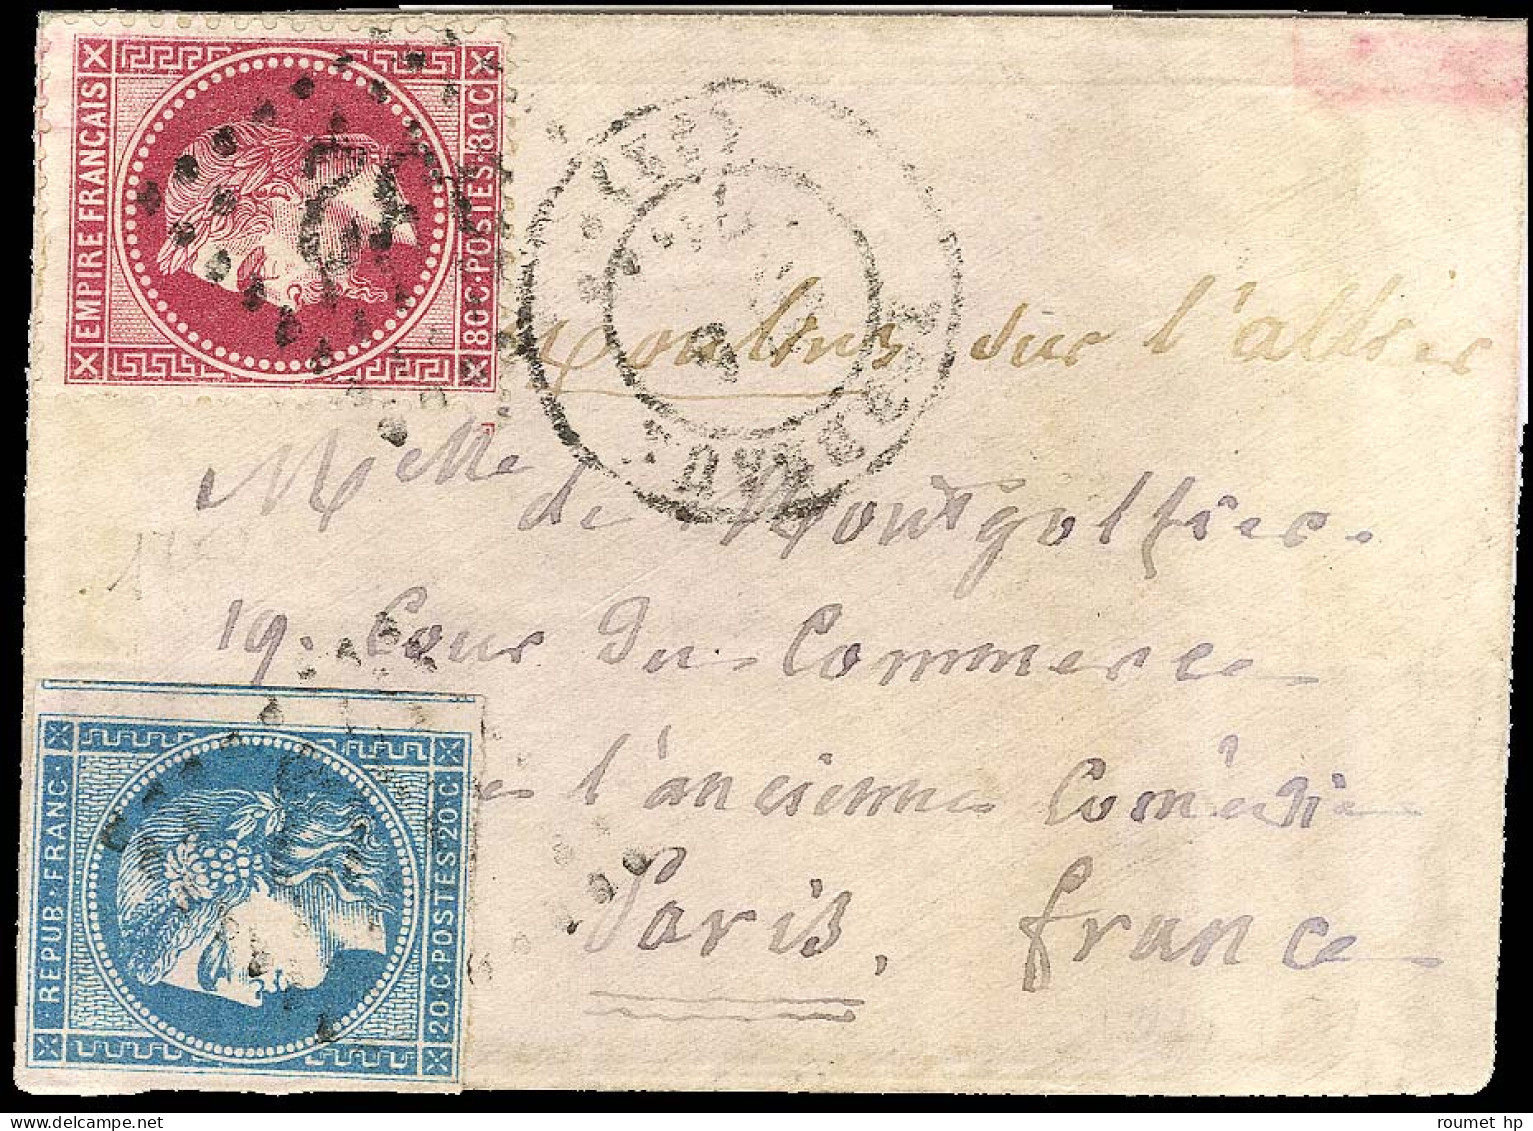 EMPIRE FRANCAIS
80C·POSTES·80C
BORDEAUX
(32)
Moulins sur l'allier
Melle de Montgolfier.
19. Cour du Commerce
l'ancienne Comédie
Paris, france
REPUB·FRANC·
20C·POSTES·20C
roumet hp